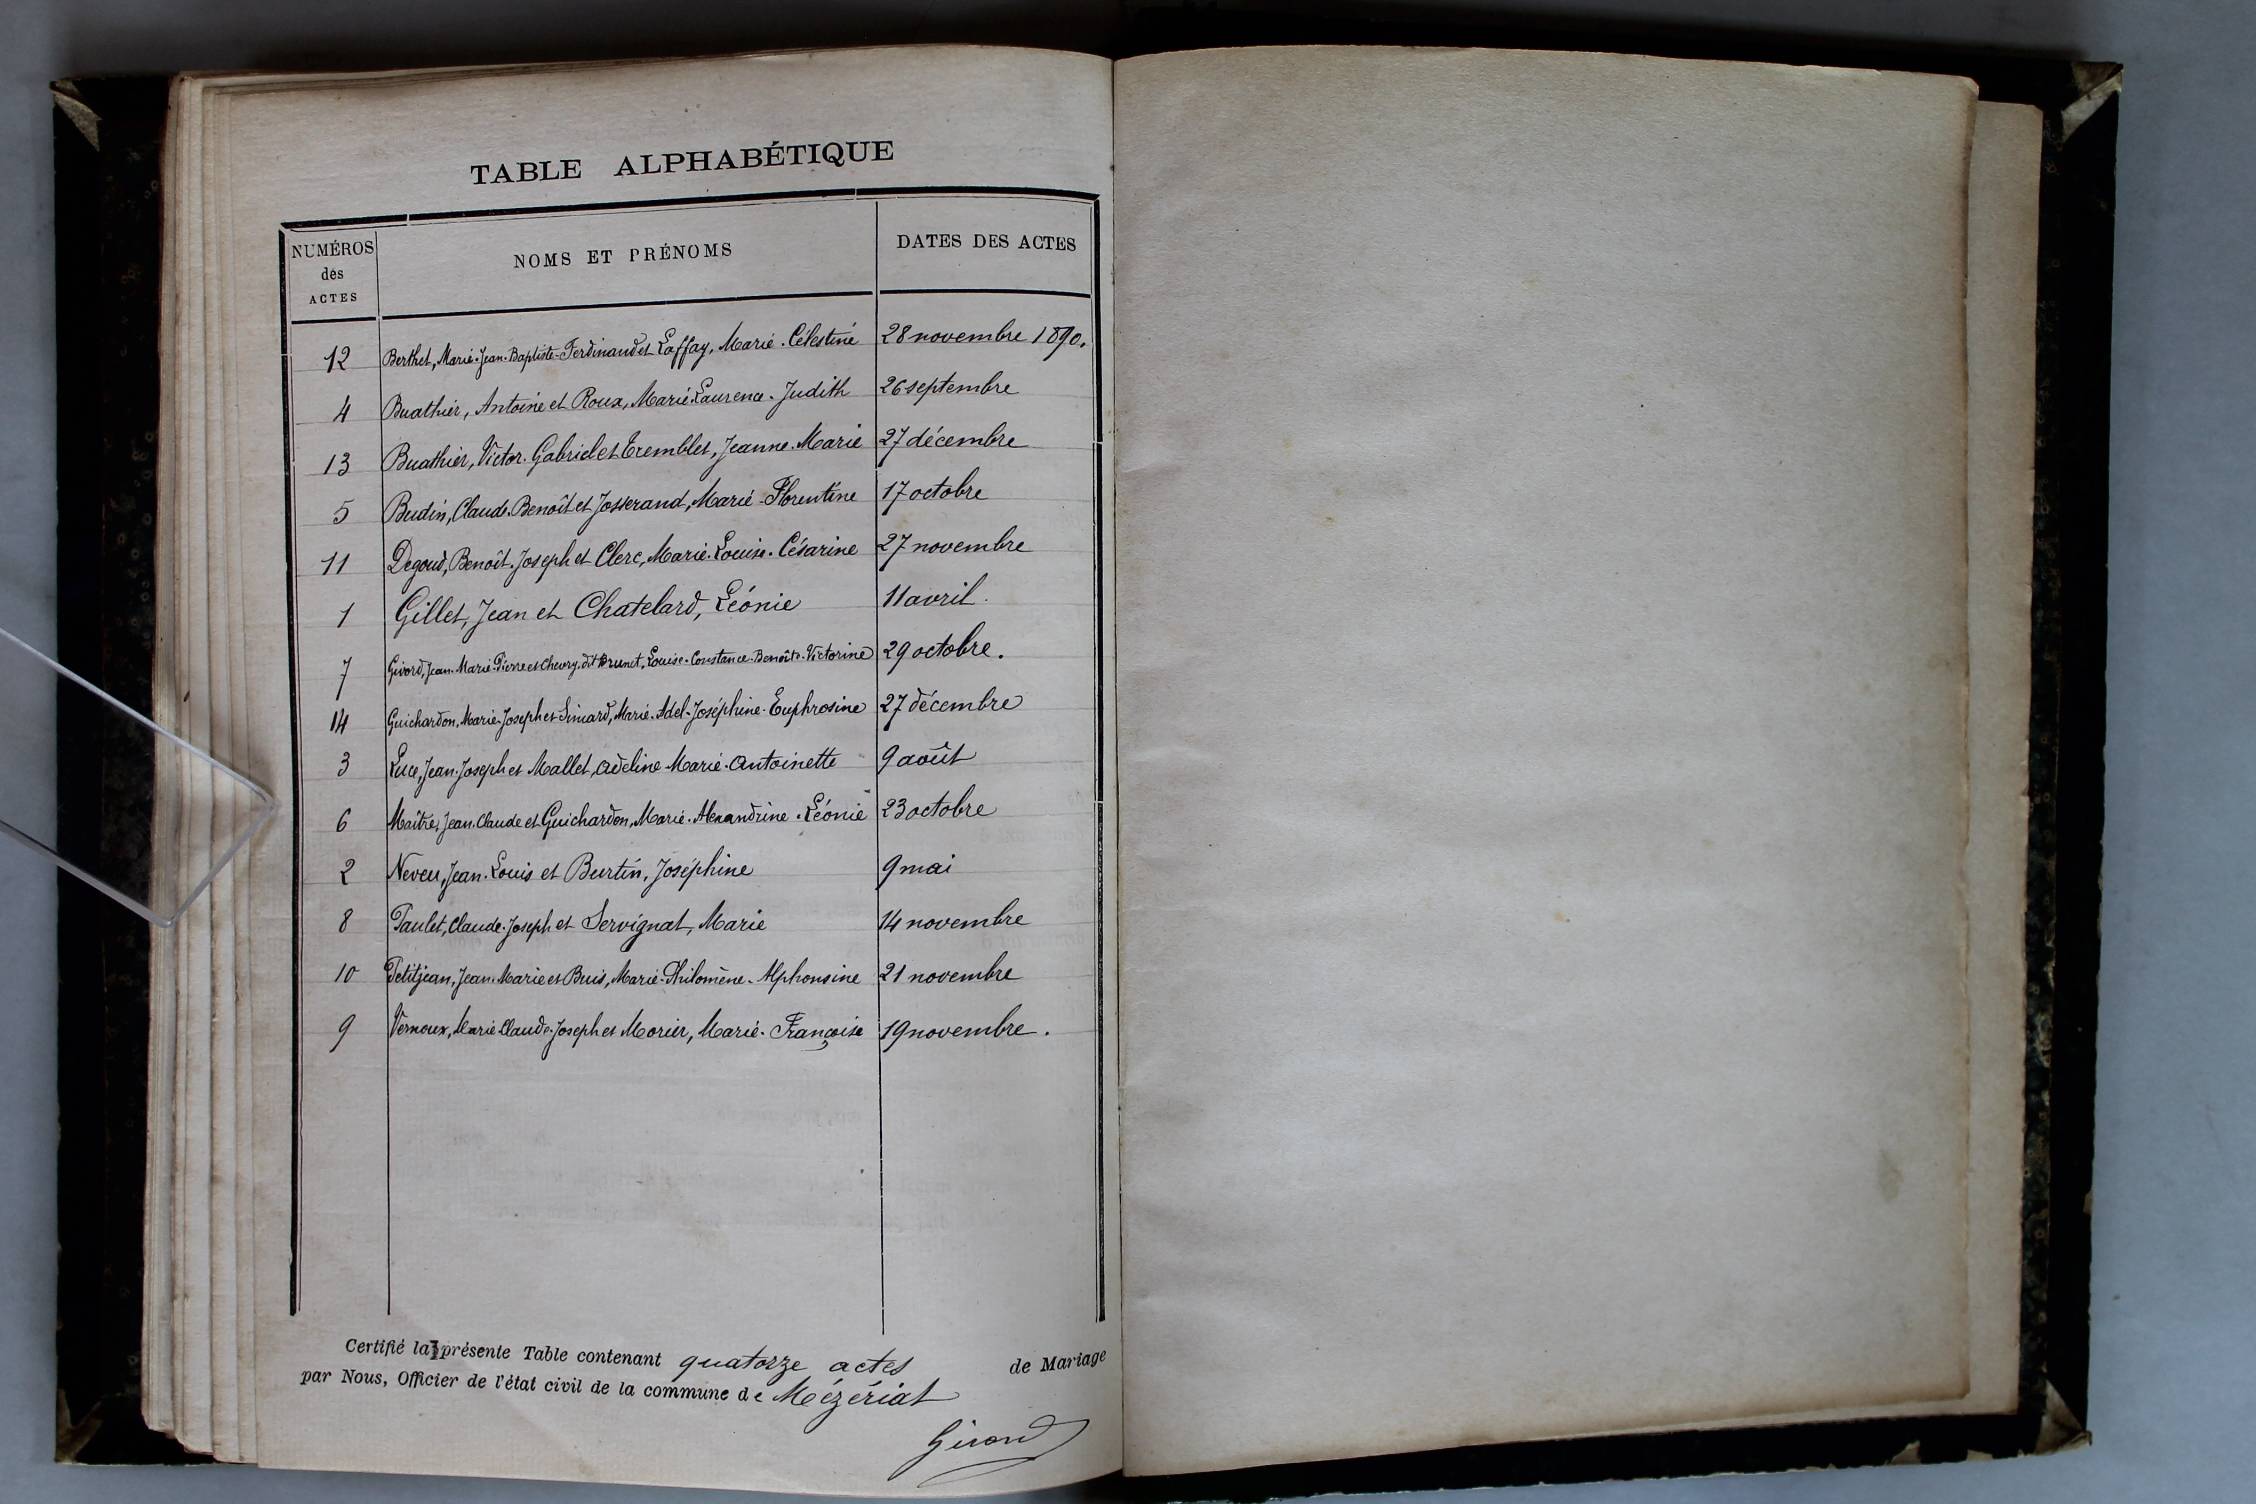 TABLE ALPHABÉTIQUE
NUMÉROS des ACTES NOMS ET PRÉNOMS DATES DES ACTES
12 Berthet, Marie-Jean-Baptiste-Ferdinand et Laffay, Marie-Célestine 28 novembre 1890.
4 Buathier, Antoine et Roux, Marie-Laurence-Judith 26 septembre
13 Buathier, Victor-Gabriel et Tremblet, Jeanne-Marie 27 décembre
5 Budin, Claude-Benoît et Josserand, Marie-Florentine 17 octobre
11 Degoud, Benoît-Joseph et Clerc, Marie-Louise-Césarine 27 novembre
1 Gillet, Jean et Chatelard, Léonie 11 avril.
7 Givord, Jean-Marie-Pierre et Chevry dit Brunet, Louise-Constance-Benoîte-Victorine 29 octobre.
14 Guichardon, Marie-Joseph et Simard, Marie-Adel-Joséphine-Euphrosine 27 décembre
3 Luce, Jean-Joseph et Mallet, Adeline Marie-Antoinette 9 août
6 Maître, Jean-Claude et Guichardon, Marie-Alexandrine-Léonie 23 octobre
2 Neveu, Jean-Louis et Burtin, Joséphine 9 mai
8 Paulet, Claude-Joseph et Servignat, Marie 14 novembre
10 Petitjean, Jean-Marie et Buis, Marie-Philomène-Alphonsine 21 novembre
9 Vernoux, Marie Claude-Joseph et Morier, Marie-Françoise 19 novembre.
Certifié la présente Table contenant quatorze actes de Mariage
par Nous, Officier de l'état civil de la commune de Mézériat